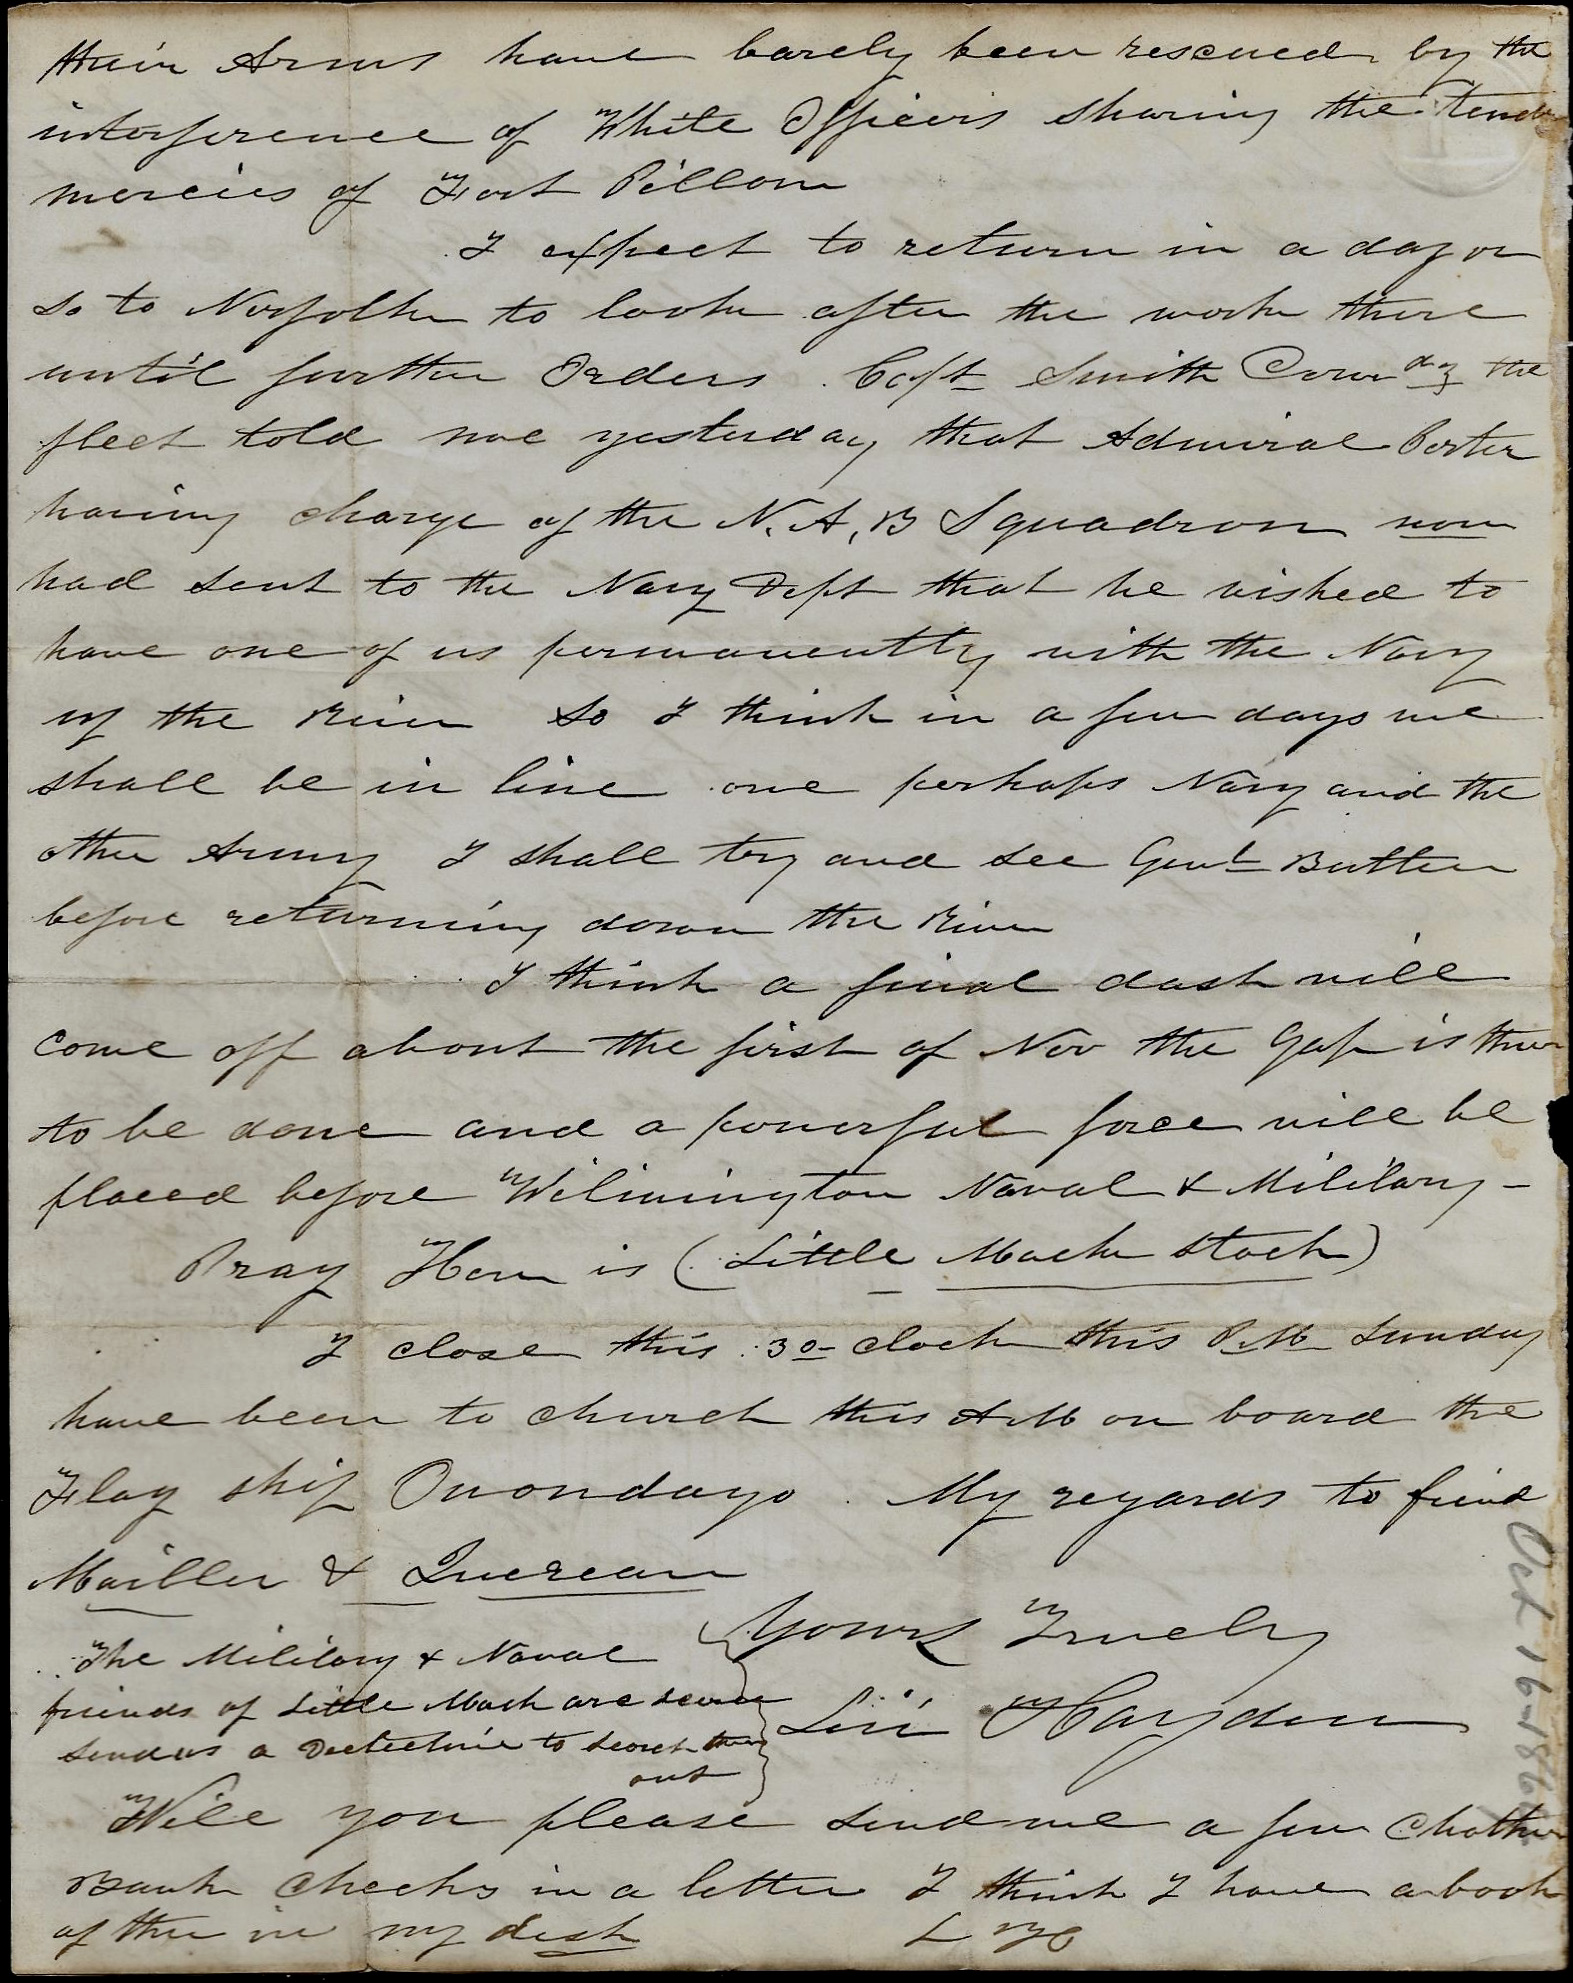 their Arms have barely been rescued by the
interference of White Officers sharing the tender
mercies of Fort Pillow
I expect to return in a day or
so to Norfolk to look after the work there
until further Orders. Capt Smith Comdg the
fleet told me yesterday that Admiral Porter
having charge of the N. A. B Squadron now
had sent to the Navy Dept that he wished to
have one of us permanently with the Navy
up the River So I think in a few days we
shall be in line one perhaps Navy and the
other Army I shall try and see Genl Butler
before returning down the River
I think a final dash will
come off about the first of Nov the Gap is then
to be done and a powerful force will be
placed before Wilmington Naval & Military -
Pray How is (Little Mack stock)
I close this 3 o- clock this P.M Sunday
have been to church this A M on board the
Flag ship Onondago. My regards to friend
Mailler & Quereau
Yours Truely
Levi Hayden
The Military & Naval
friends of Little Mack are scarce
send us a Dectective to search them
out
Will you please send me a few Chatham
Bank checks in a letter I think I have a book
of the in my desk
L H
Oct 16 - 1864